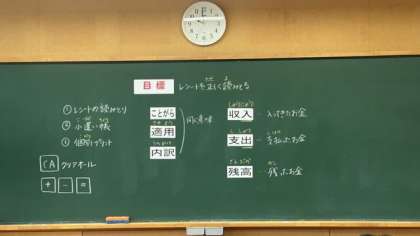 目標 レシートを正しく読みとる
① レシートの読みとり
② 小遣い帳
③ 個別プリント
CA クリアオール
+ - =
ことがら
適用
内訳
同じ意味
収入 … 入ってきたお金
支出 … 支払ったお金
残高 … 残ったお金